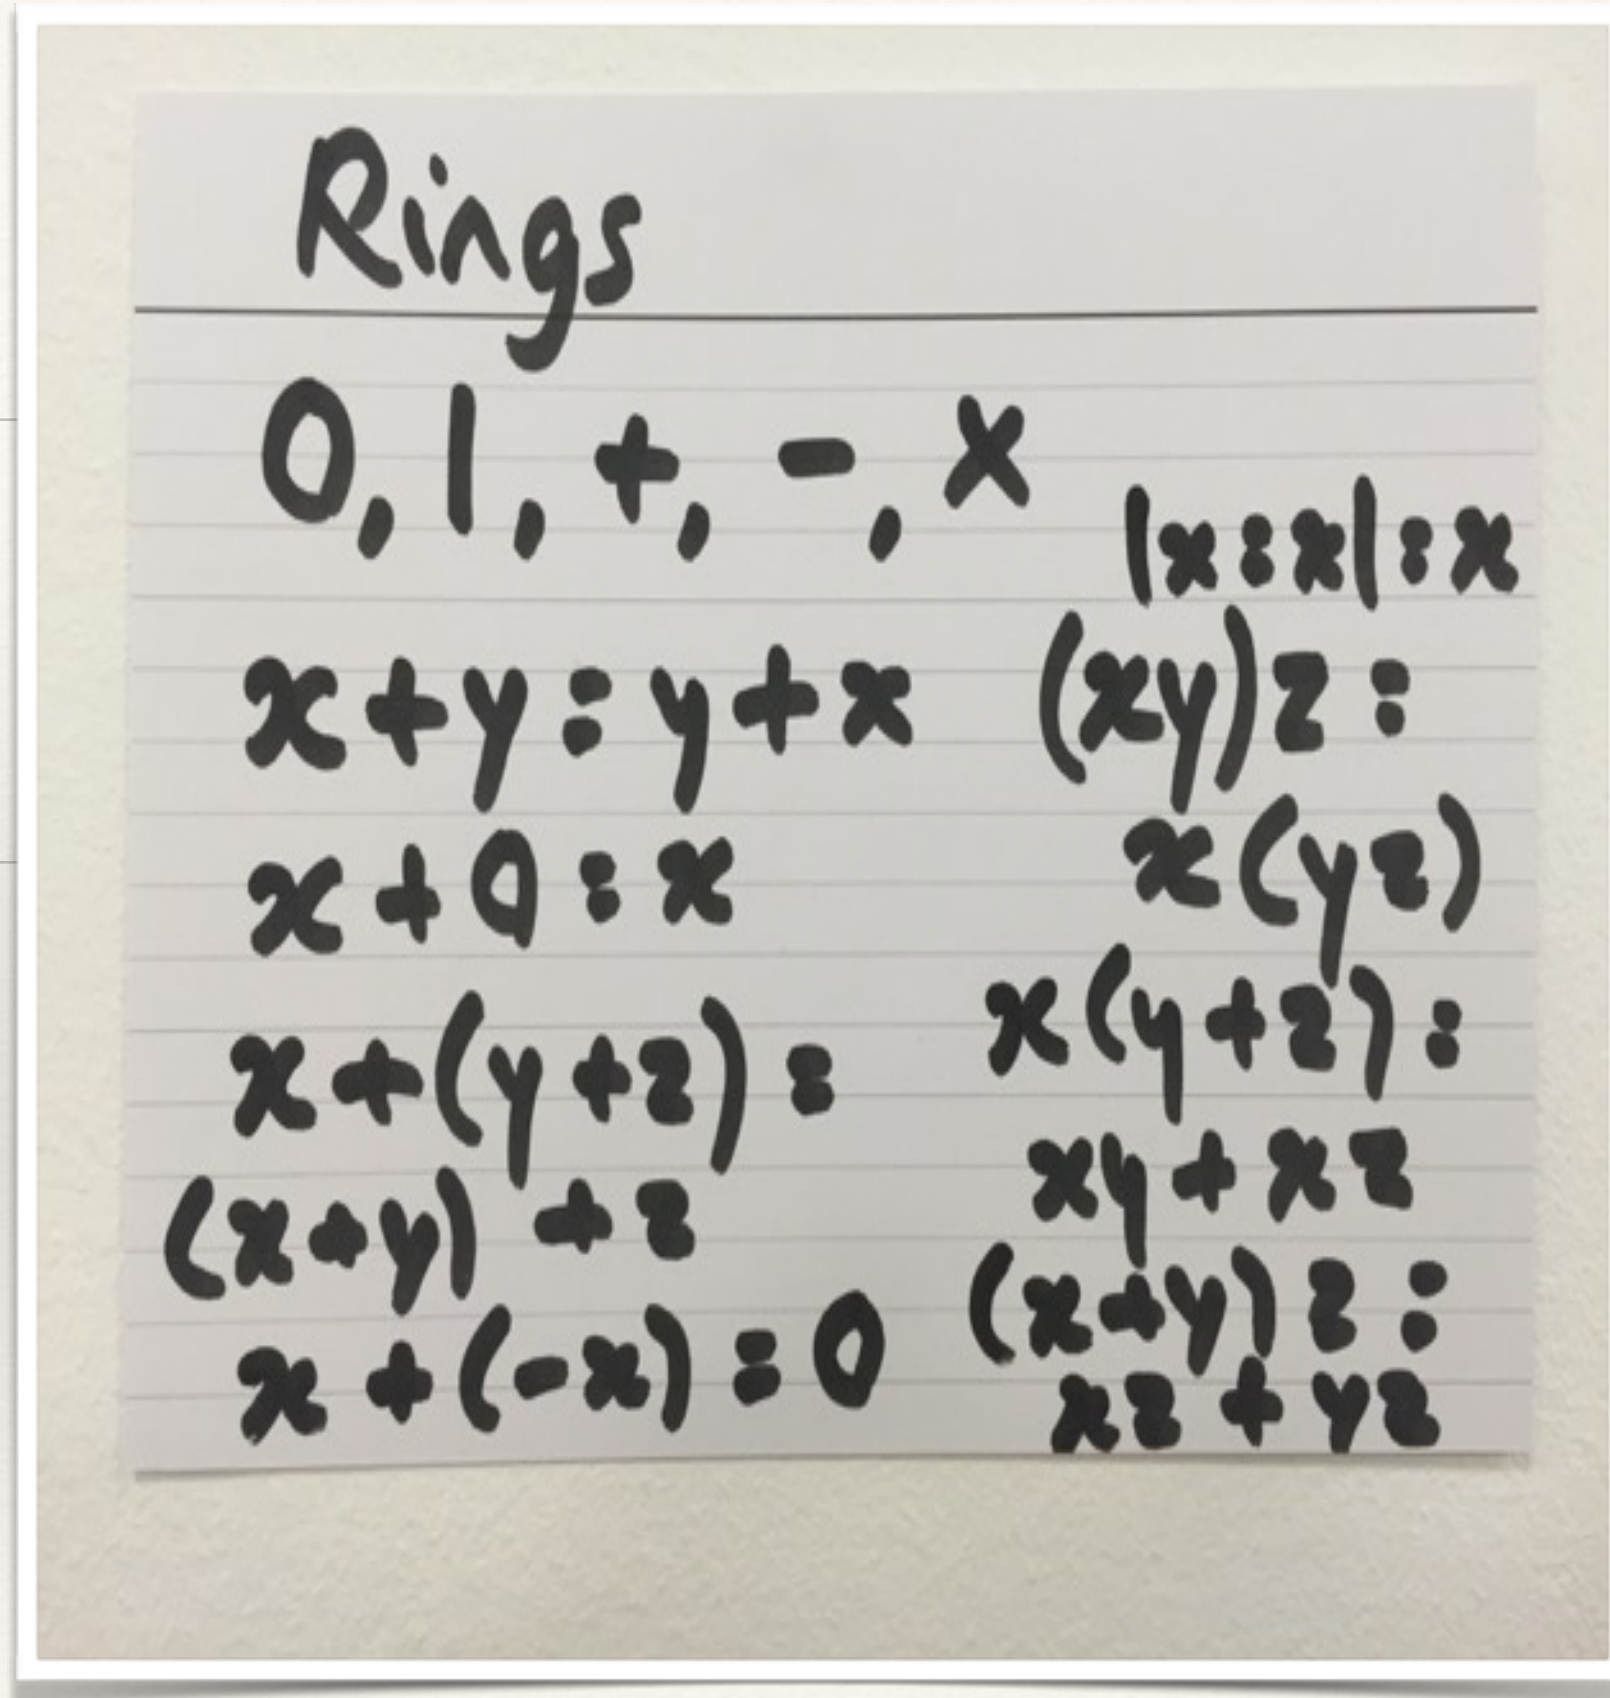 Rings
0, 1, +, -, ×
x + y = y + x
x + 0 = x
x + (y + z) =
(x + y) + z
x + (-x) = 0
1x = x1 = x
(xy)z =
x(yz)
x(y + z) =
xy + xz
(x + y)z =
xz + yz